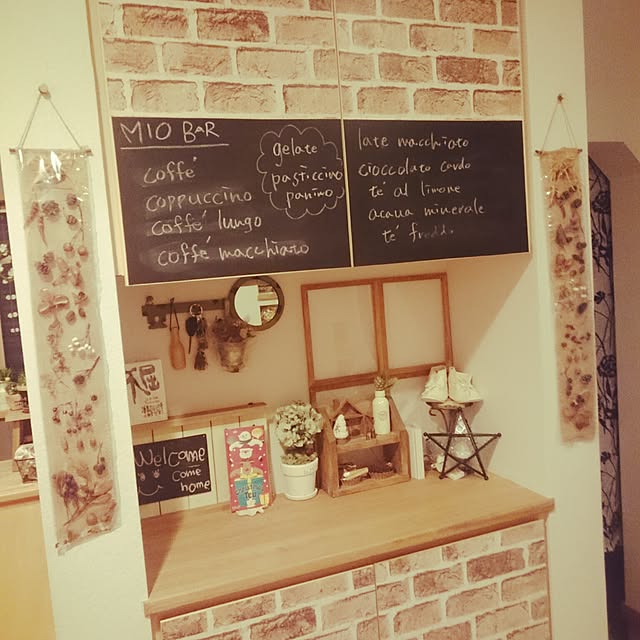 MIO BAR
caffé
cappuccino
caffé lungo
caffé macchiato
gelate
pasticcino
panino
late macchiato
cioccolato cardo
té al limone
acqua minerale
té freddo
Welcome
come
home